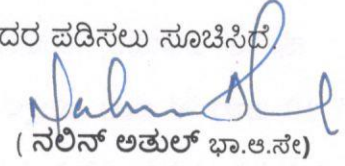 ದರ ಪಡಿಸಲು ಸೂಚಿಸಿದೆ.
( ನಲಿನ್ ಅತುಲ್ ಭಾ.ಆ.ಸೇ)